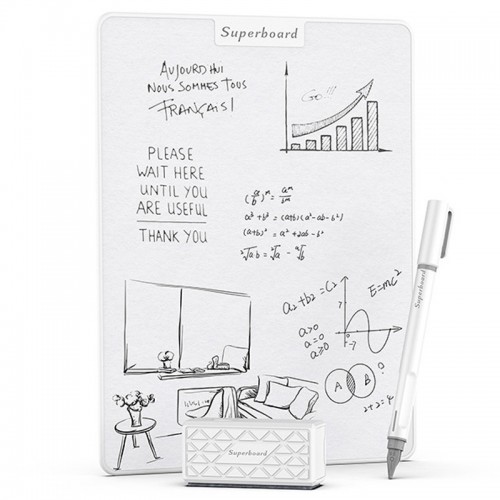 Superboard
AUJOURD'HUI
NOUS SOMMES TOUS
FRANÇAIS!
Go!!!
PLEASE
WAIT HERE
UNTIL YOU
ARE USEFUL
THANK YOU
(a/b)^m = a^m/b^m
a³+b³=(a+b)(a²-ab-b²)
(a+b)²=a²+2ab-b²
²√ab = ²√a - ⁿ√b
a2+b2=C2
E=mc²
a>0
a=0
a≥0
7
-7
A
B
?
2+2=4
Superboard
Superboard